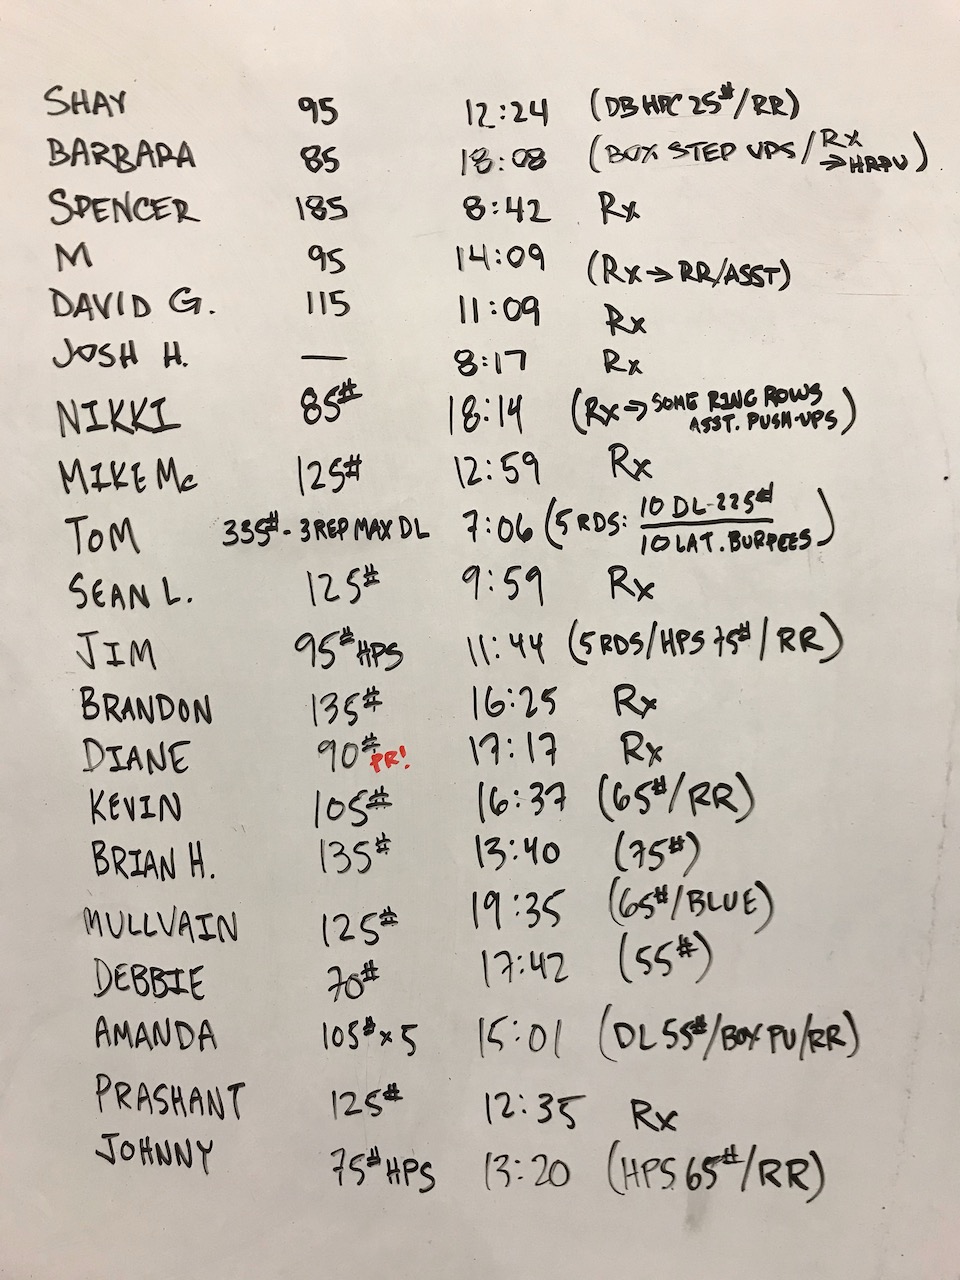 SHAY 95 12:24 (DB HPC 25#/RR)
BARBARA 85 18:08 (BOX STEP UPS/RX → HRPU)
SPENCER 185 8:42 Rx
M 95 14:09 (Rx→RR/ASST)
DAVID G. 115 11:09 Rx
JOSH H. — 8:17 Rx
NIKKI 85# 18:14 (Rx→SOME RING ROWS
ASST. PUSH-UPS)
MIKE Mc 125# 12:59 Rx
TOM 335#-3 REP MAX DL 7:06 (5 RDS: 10 DL-225#
10 LAT. BURPEES)
SEAN L. 125# 9:59 Rx
JIM 95# HPS 11:44 (5 RDS/HPS 75#/RR)
BRANDON 135# 16:25 Rx
DIANE 90# PR! 17:17 Rx
KEVIN 105# 16:37 (65#/RR)
BRIAN H. 135# 13:40 (75#)
MULLVAIN 125# 19:35 (65#/BLUE)
DEBBIE 70# 17:42 (55#)
AMANDA 105# x 5 15:01 (DL 55#/BOX PU/RR)
PRASHANT 125# 12:35 Rx
JOHNNY 75# HPS 13:20 (HPS 65#/RR)